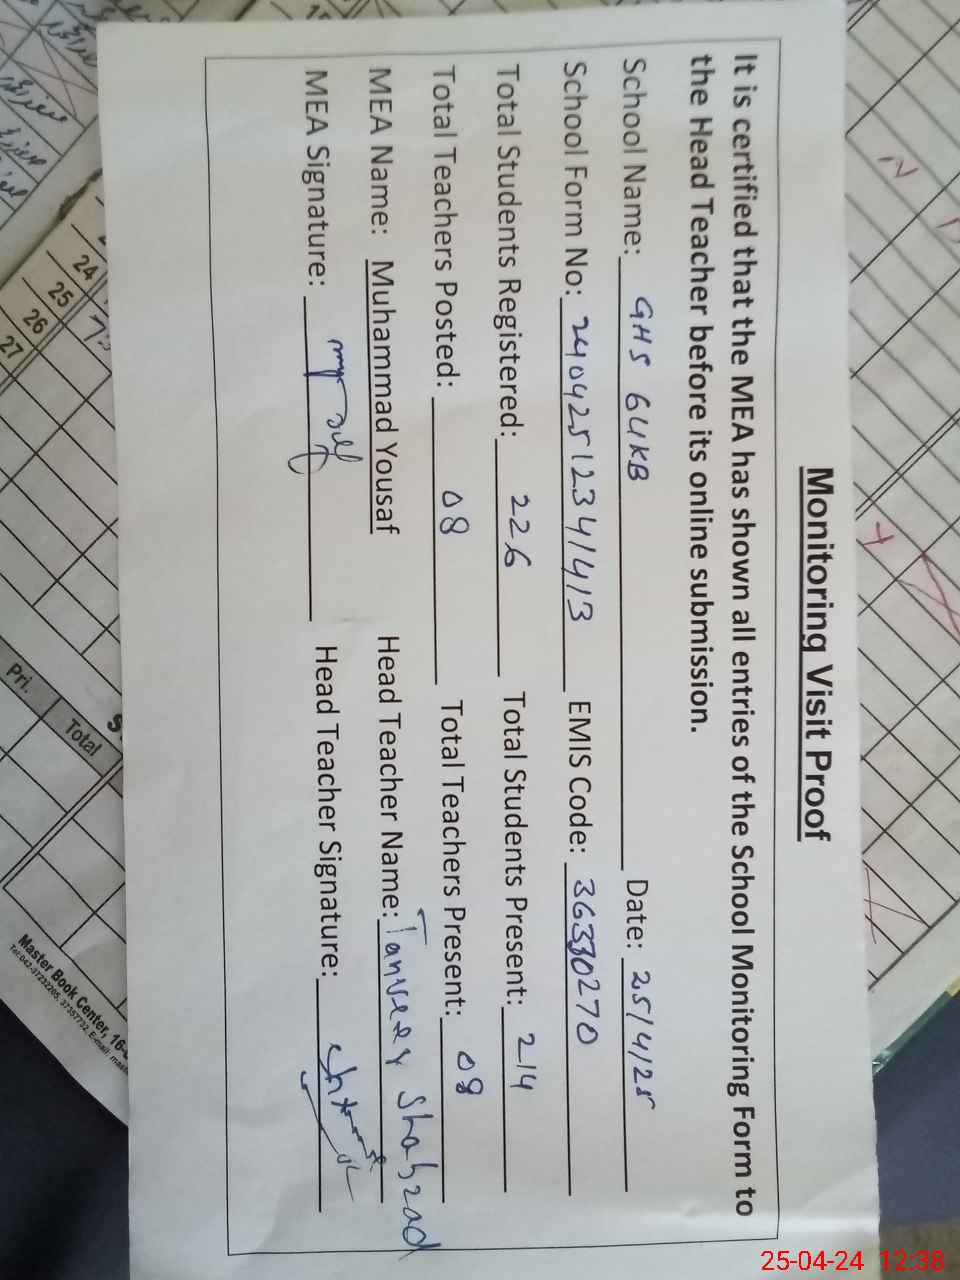 Monitoring Visit Proof
It is certified that the MEA has shown all entries of the School Monitoring Form to
the Head Teacher before its online submission.
School Name: GHS 64KB Date: 25/4/25
School Form No: 2404251234/4/3 EMIS Code: 36330270
Total Students Registered: 226 Total Students Present: 214
Total Teachers Posted: 08 Total Teachers Present: 08
MEA Name: Muhammad Yousaf Head Teacher Name: Tanveer Shahzad
MEA Signature: Head Teacher Signature:
24
25
26
27
Pri. Total
Master Book Center, 16-
Tel:042-37232205, 37357732, E-mail:
25-04-24 12:38